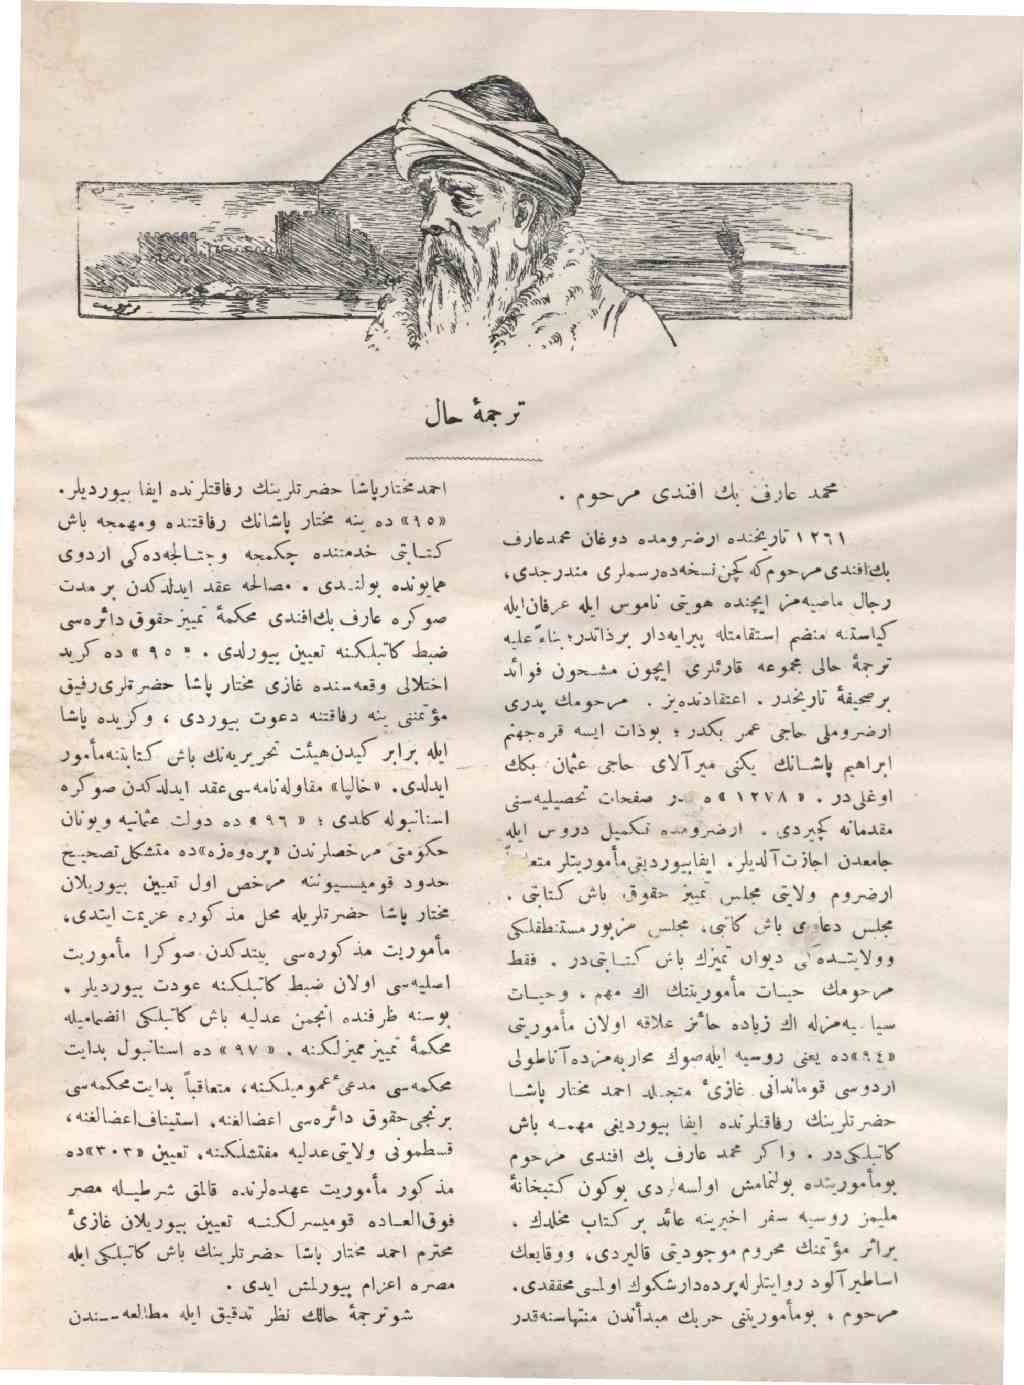 ترجمهٔ حال
محمد عارف بك افندی مرحوم .
١٢٦١ تاریخنده ارضرومده دوغان محمدعارف
بك‌افندی‌مرحوم‌كه كچن‌نسخه‌ده‌رسملری مندرجدی،
رجال ماضیه‌مز ایچنده هویتی ناموس ایله عرفان‌ایله
كیاستله منضم استقامتله پیرایه‌دار برذاتدر؛ بناءً علیه
ترجمهٔ حالی مجموعه قارئلری ایچون مشحون فوائد
برصحیفهٔ تاریخدر . اعتقادنده‌یز . مرحومك پدری
ارضروملی حاجی عمر بكدر ؛ بوذات ایسه قره‌جهنم
ابراهیم پاشانك یكنی میرآلای حاجی عثمان بكك
اوغلی‌در . «١٢٧٨» ه‌ در صفحات تحصیلیه‌سنی
مقدمانه كچیردی . ارضرومده تكمیل دروس ایله
جامعدن اجازت‌آلدیلر. ایفابیوردیغی‌مأموریتلر
ارضروم ولایتی مجلس تمییز حقوق باش كتابتی .
مجلس دعاوی باش كاتبی، مجلس مزبور مستنطقلكی
وولایتده‌كی دیوان تمیزك باش كتابتی‌در . فقط
مرحومك حیات مأموریتنك اك مهم . وحیات
سیاسیه‌مزله اك زیاده حائز علاقه اولان مأموریتی
«٩٤»ده یعنی روسیه ایله‌صوك محاربه‌مزده‌آناطولی
اردوسی قوماندانی غازیٔ متجلد احمد مختار پاشا
حضرتلرینك رفاقتلرنده ایفا بیوردیغی مهمه باش
كاتبلكی‌در . واكر محمد عارف بك افندی مرحوم
بومأموریتده بولنمامش اولسه‌لردی بوكون كتبخانهٔ
ملیمز روسیه سفر اخیرینه عائد بر كتاب مخلدك .
براثر مؤتمنك محروم موجودیتی قالیردی، ووقایعك
اساطیرآلود روایتلرله‌پرده‌دارشكوك اولسی‌محققدی.
مرحوم ، بومأموریتنی حربك مبدأندن منتهاسنه‌قدر
احمدمختارپاشا حضرتلرینك رفاقتلرنده ایفا بیوردیلر.
«٩٥» ده ینه مختار پاشانك رفاقتنده ومهمجه باش
كتابتی خدمتنده چكمجه وچتالجه‌ده‌كی اردوی
همایونده بولندی . مصالحه عقد ایدلدكدن بر مدت
صوكره عارف بك‌افندی محكمهٔ تمییزحقوق دائره‌سی
ضبط كاتبلكنه تعیین بیورلدی . «٩٥» ده كرید
اختلالی وقعه‌سنده غازی مختار پاشا حضرتلری‌رفیق
مؤتمننی ینه رفاقتنه دعوت بیوردی ، وكریده پاشا
ایله برابر كیدن‌هیئت تحریریه‌نك باش كتابتنه‌مأمور
ایدلدی. «خالپا» مقاوله‌نامه‌سی‌عقد ایدلدكدن صوكره
استانبوله كلدی ؛ «٩٦» ده دولت عثمانیه ویونان
حكومتی مرخصلرندن «پره‌وه‌زه»ده متشكل‌تصحیح
حدود قومیسیوننه مرخص اول تعیین بیوریلان
مختار پاشا حضرتلریله محل مذكوره عزیمت ایتدی،
مأموریت مذكوره‌سی بیتدكدن صوكرا مأموریت
اصلیه‌سی اولان ضبط كاتبلكنه عودت بیوردیلر .
بوسنه ظرفنده انجمن عدلیه باش كاتبلكی انضمامیله
محكمهٔ تمییز ممیزلكنه . «٩٧» ده استانبول بدایت
محكمه‌سی مدعیٔ‌عمومیلكنه، متعاقباً بدایت‌محكمه‌سی
برنجی‌حقوق دائره‌سی اعضالغنه، استیناف‌اعضالغنه،
قسطمونی ولایتی‌عدلیه مفتشلكنه، تعیین «٣٠٣»ده
مذكور مأموریت عهده‌لرنده قالمق شرطیله مصر
فوق‌العاده قومیسرلكنه تعیین بیوریلان غازیٔ
محترم احمد مختار پاشا حضرتلرینك باش كاتبلكی‌ایله
مصره اعزام بیورلمش ایدی .
شوترجمهٔ حالك نظر تدقیق ایله مطالعه‌سندن